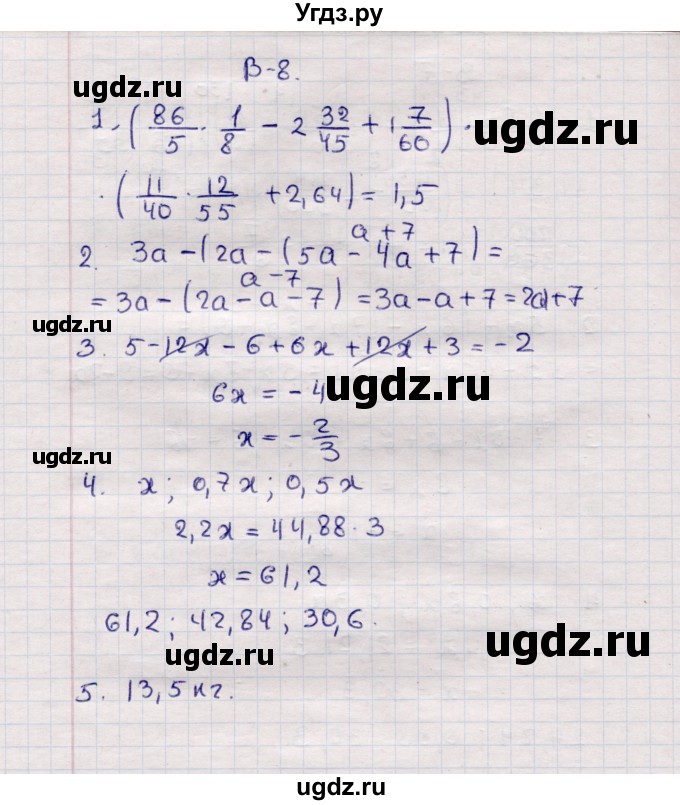 Угдз.ру
ugdz.ru ugdz.ru
В-8.
1. (86/5 · 1/8 - 2 32/45 + 1 7/60) ·
· (11/40 · 12/55 + 2,64) = 1,5
a + 7
2. 3a - (2a - (5a - 4a + 7) =
a - 7
= 3a - (2a - a - 7) = 3a - a + 7 = 2a + 7
ugdz.ru ugdz.ru
3. 5 - 12x - 6 + 6x + 12x + 3 = -2
6x = -4
ugdz.ru
x = -2/3
ugdz.ru
4. x; 0,7x; 0,5x
2,2x = 44,88 · 3
x = 61,2
ugdz.ru ugdz.ru
61,2; 42,84; 30,6.
ugdz.ru ugdz.ru
5. 13,5 кг.
ugdz.ru